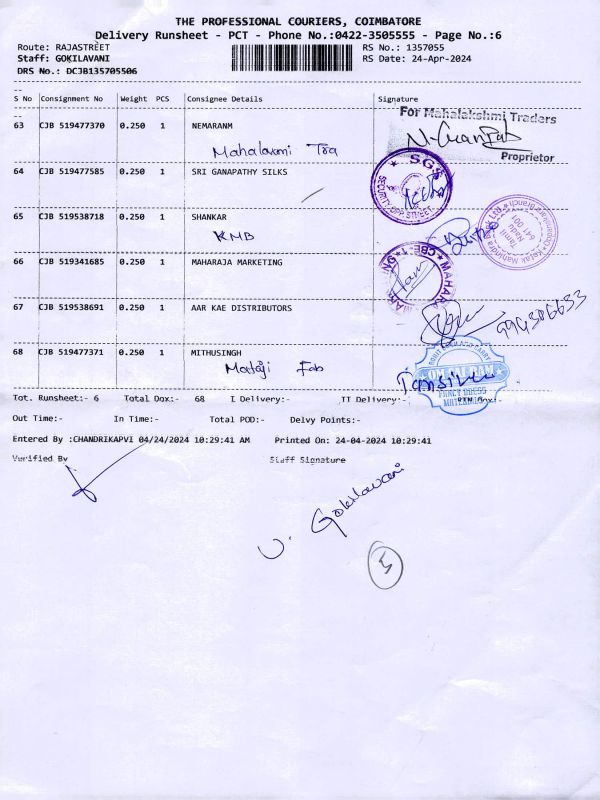 THE PROFESSIONAL COURIERS, COIMBATORE
Delivery Runsheet - PCT - Phone No.:0422-3505555 - Page No.:6
Route: RAJASTREET
RS No.: 1357055
Staff: GOKILAVANI
RS Date: 24-Apr-2024
DRS No.: DCJB135705506
S No Consignment No Weight PCS Consignee Details Signature
For Mahalakshmi Traders
63 CJB 519477370 0.250 1 NEMARANM
Mahalaxmi Tra
Proprietor
64 CJB 519477585 0.250 1 SRI GANAPATHY SILKS
SGS
SECURITY OPP STREET
65 CJB 519538718 0.250 1 SHANKAR
KMB
641 001
Tamil
Nadu
66 CJB 519341685 0.250 1 MAHARAJA MARKETING
CBE
67 CJB 519538691 0.250 1 AAR KAE DISTRIBUTORS
68 CJB 519477371 0.250 1 MITHUSINGH
Mataji Fab
FANCY DRESS
MATERIALS
Tot. Runsheet:- 6 Total Dox:- 68 I Delivery:- II Delivery:-
Out Time:- In Time:- Total POD:- Delvy Points:-
Entered By :CHANDRIKAPVI 04/24/2024 10:29:41 AM Printed On: 24-04-2024 10:29:41
Verified By Staff Signature
V. Gokilavani
5